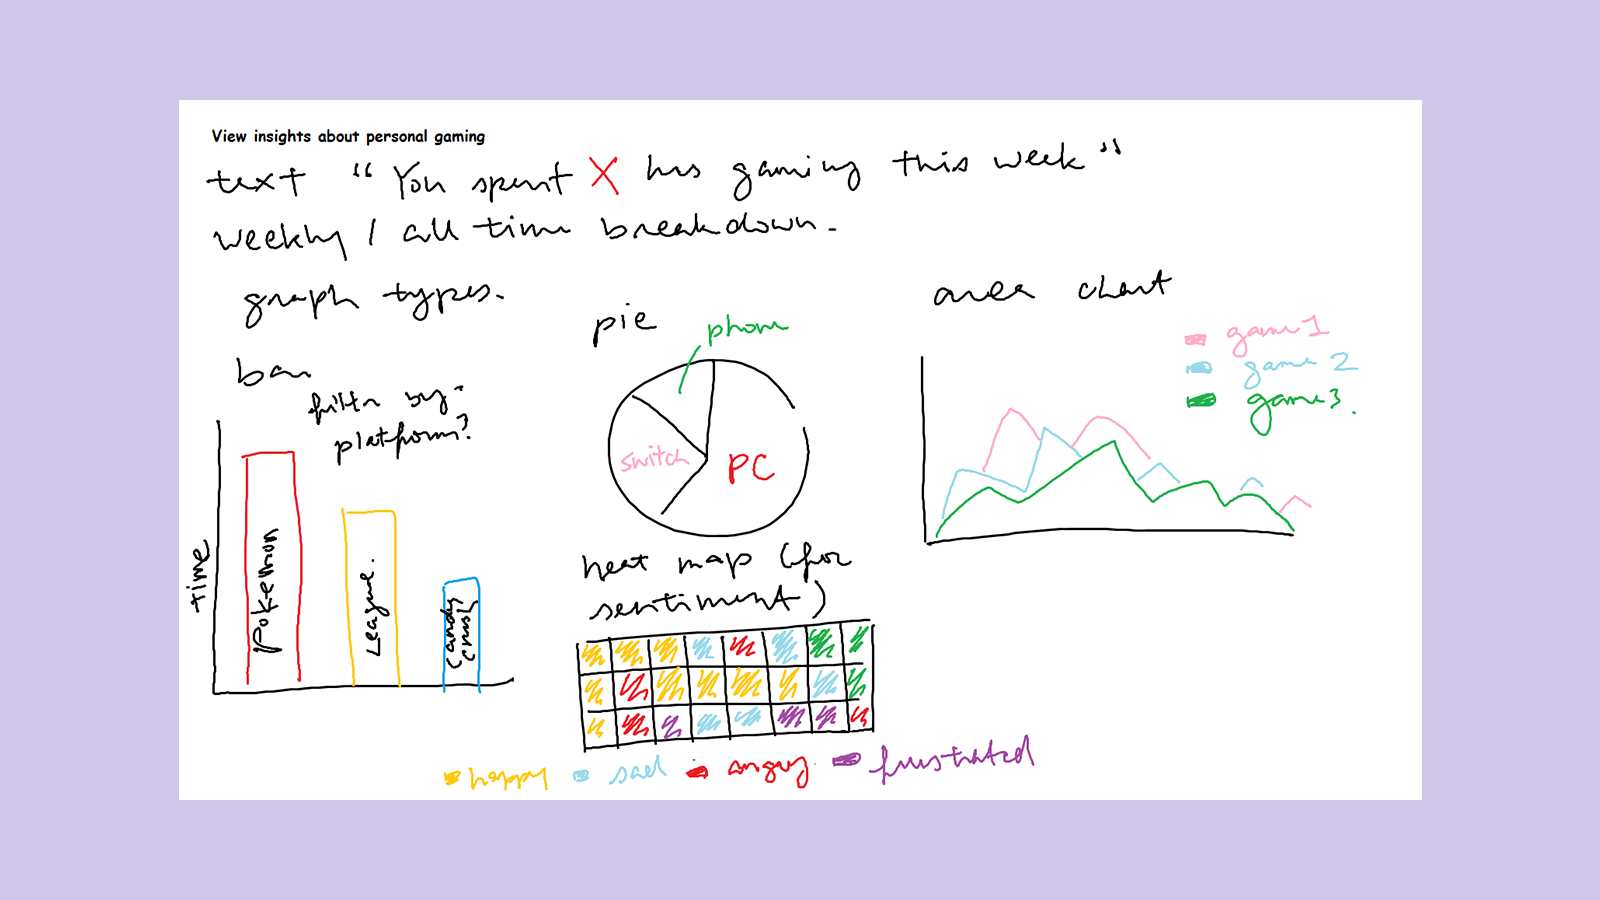 View insights about personal gaming
text "You spent X hrs gaming this week"
weekly / all time breakdown.
graph types.
bar
filter by
platform?
time
Pokemon
League.
Candy
Crush
pie
phone
switch
PC
area chart
game 1
game 2
game 3.
heat map (for
sentiment)
happy sad angry frustrated